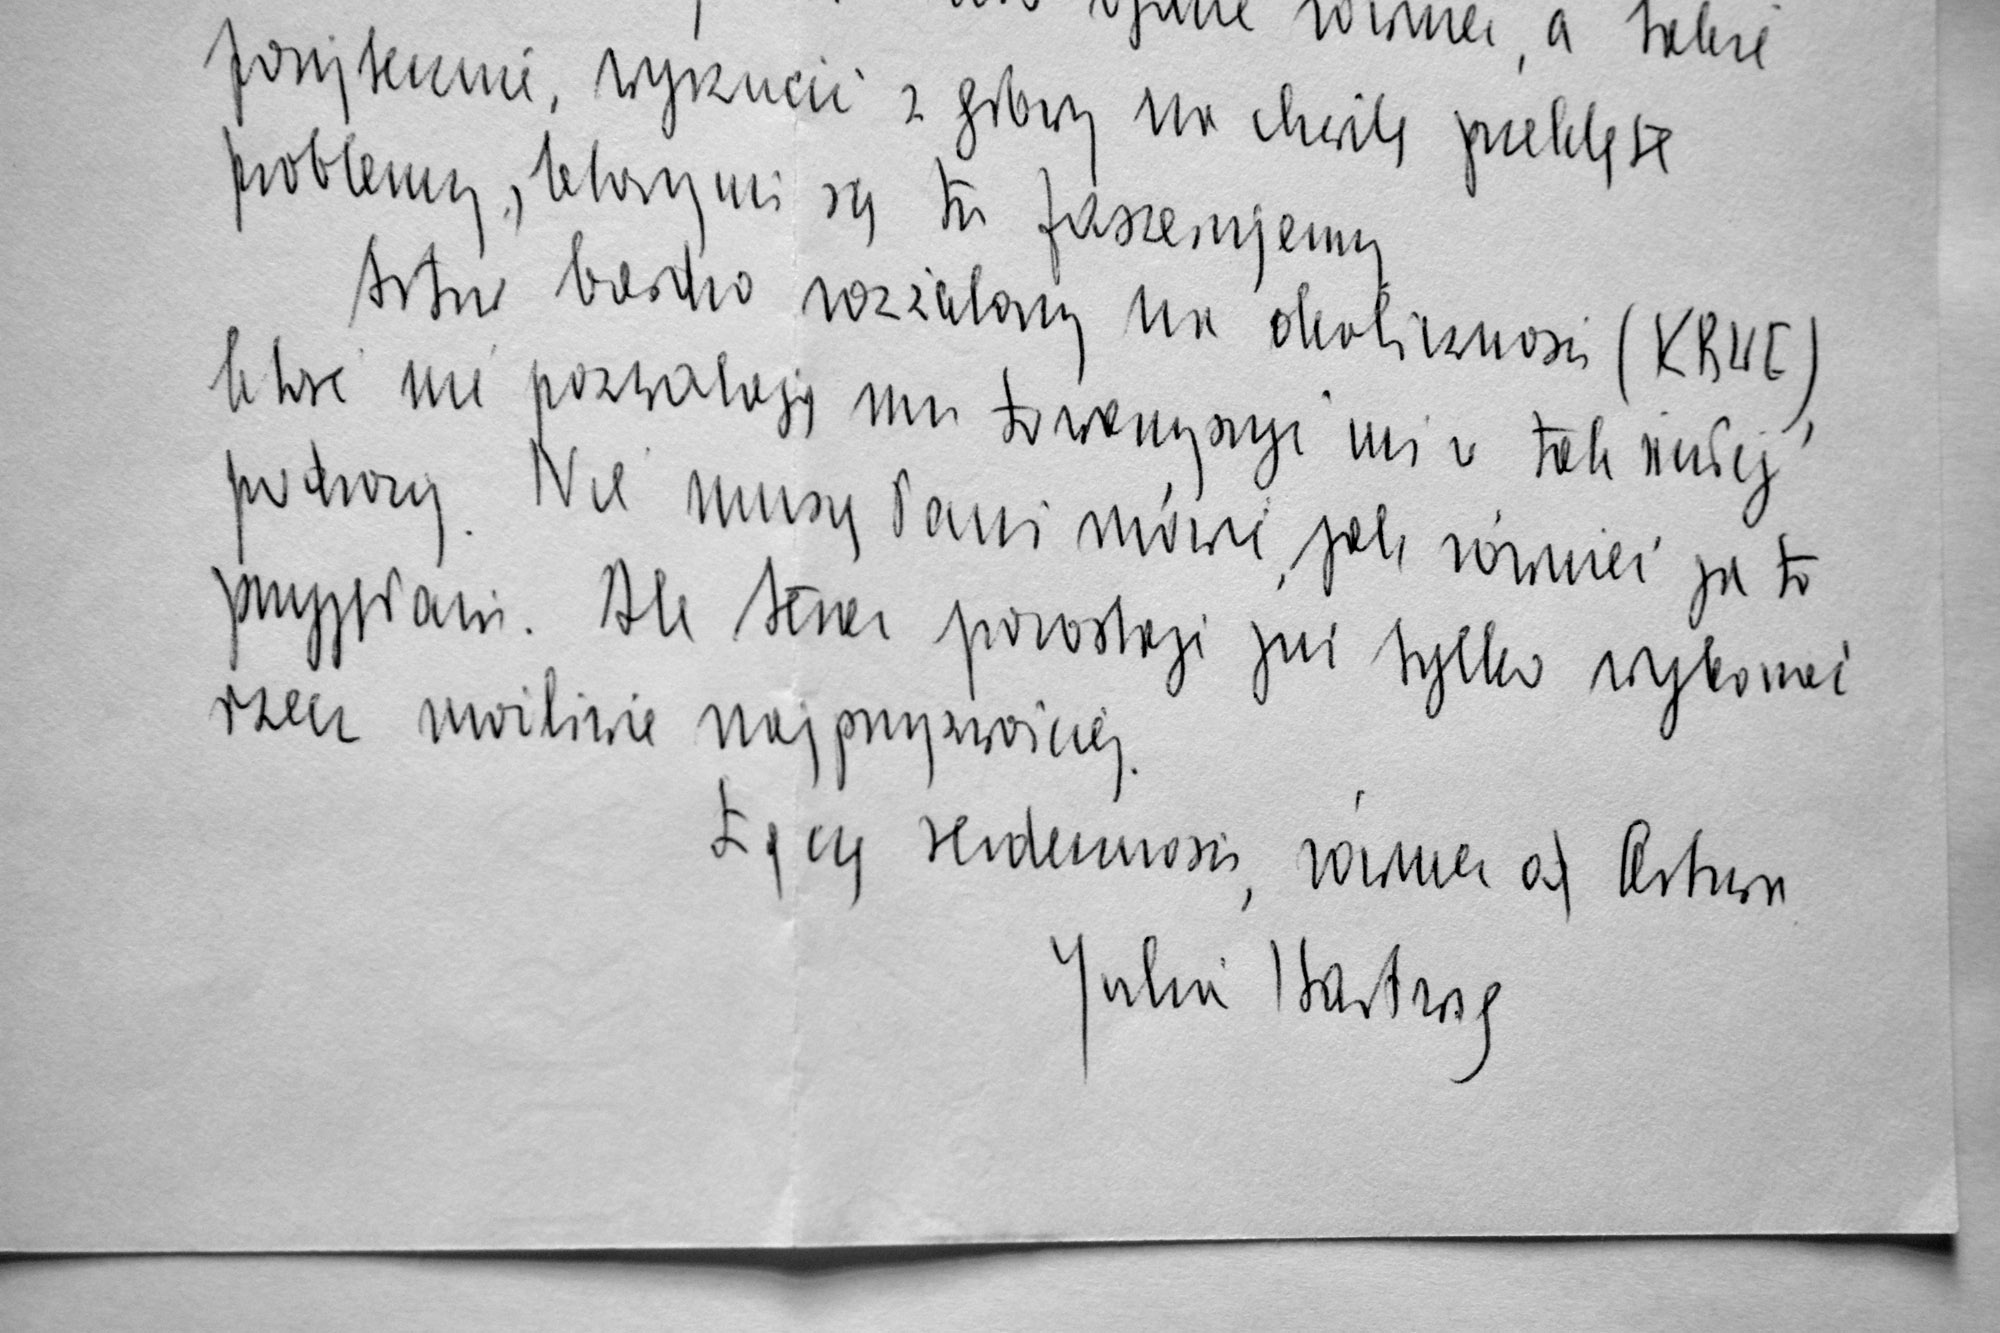 również, a także
pożytecznie, wyrzucić z głowy na chwilę przeklęte
problemy, którymi się tu
Artur bardzo rozżalony na okoliczności (KRWE)
które nie pozwalają mu towarzyszyć mi w tak miłej
podróży. Nie muszę Pani mówić, jak również ja to
przyjęłam. Ale teraz pozostaje już tylko wykonać
rzecz możliwie najprzyzwoiciej.
Łączę serdeczności, również od Artura
Julia Hartwig